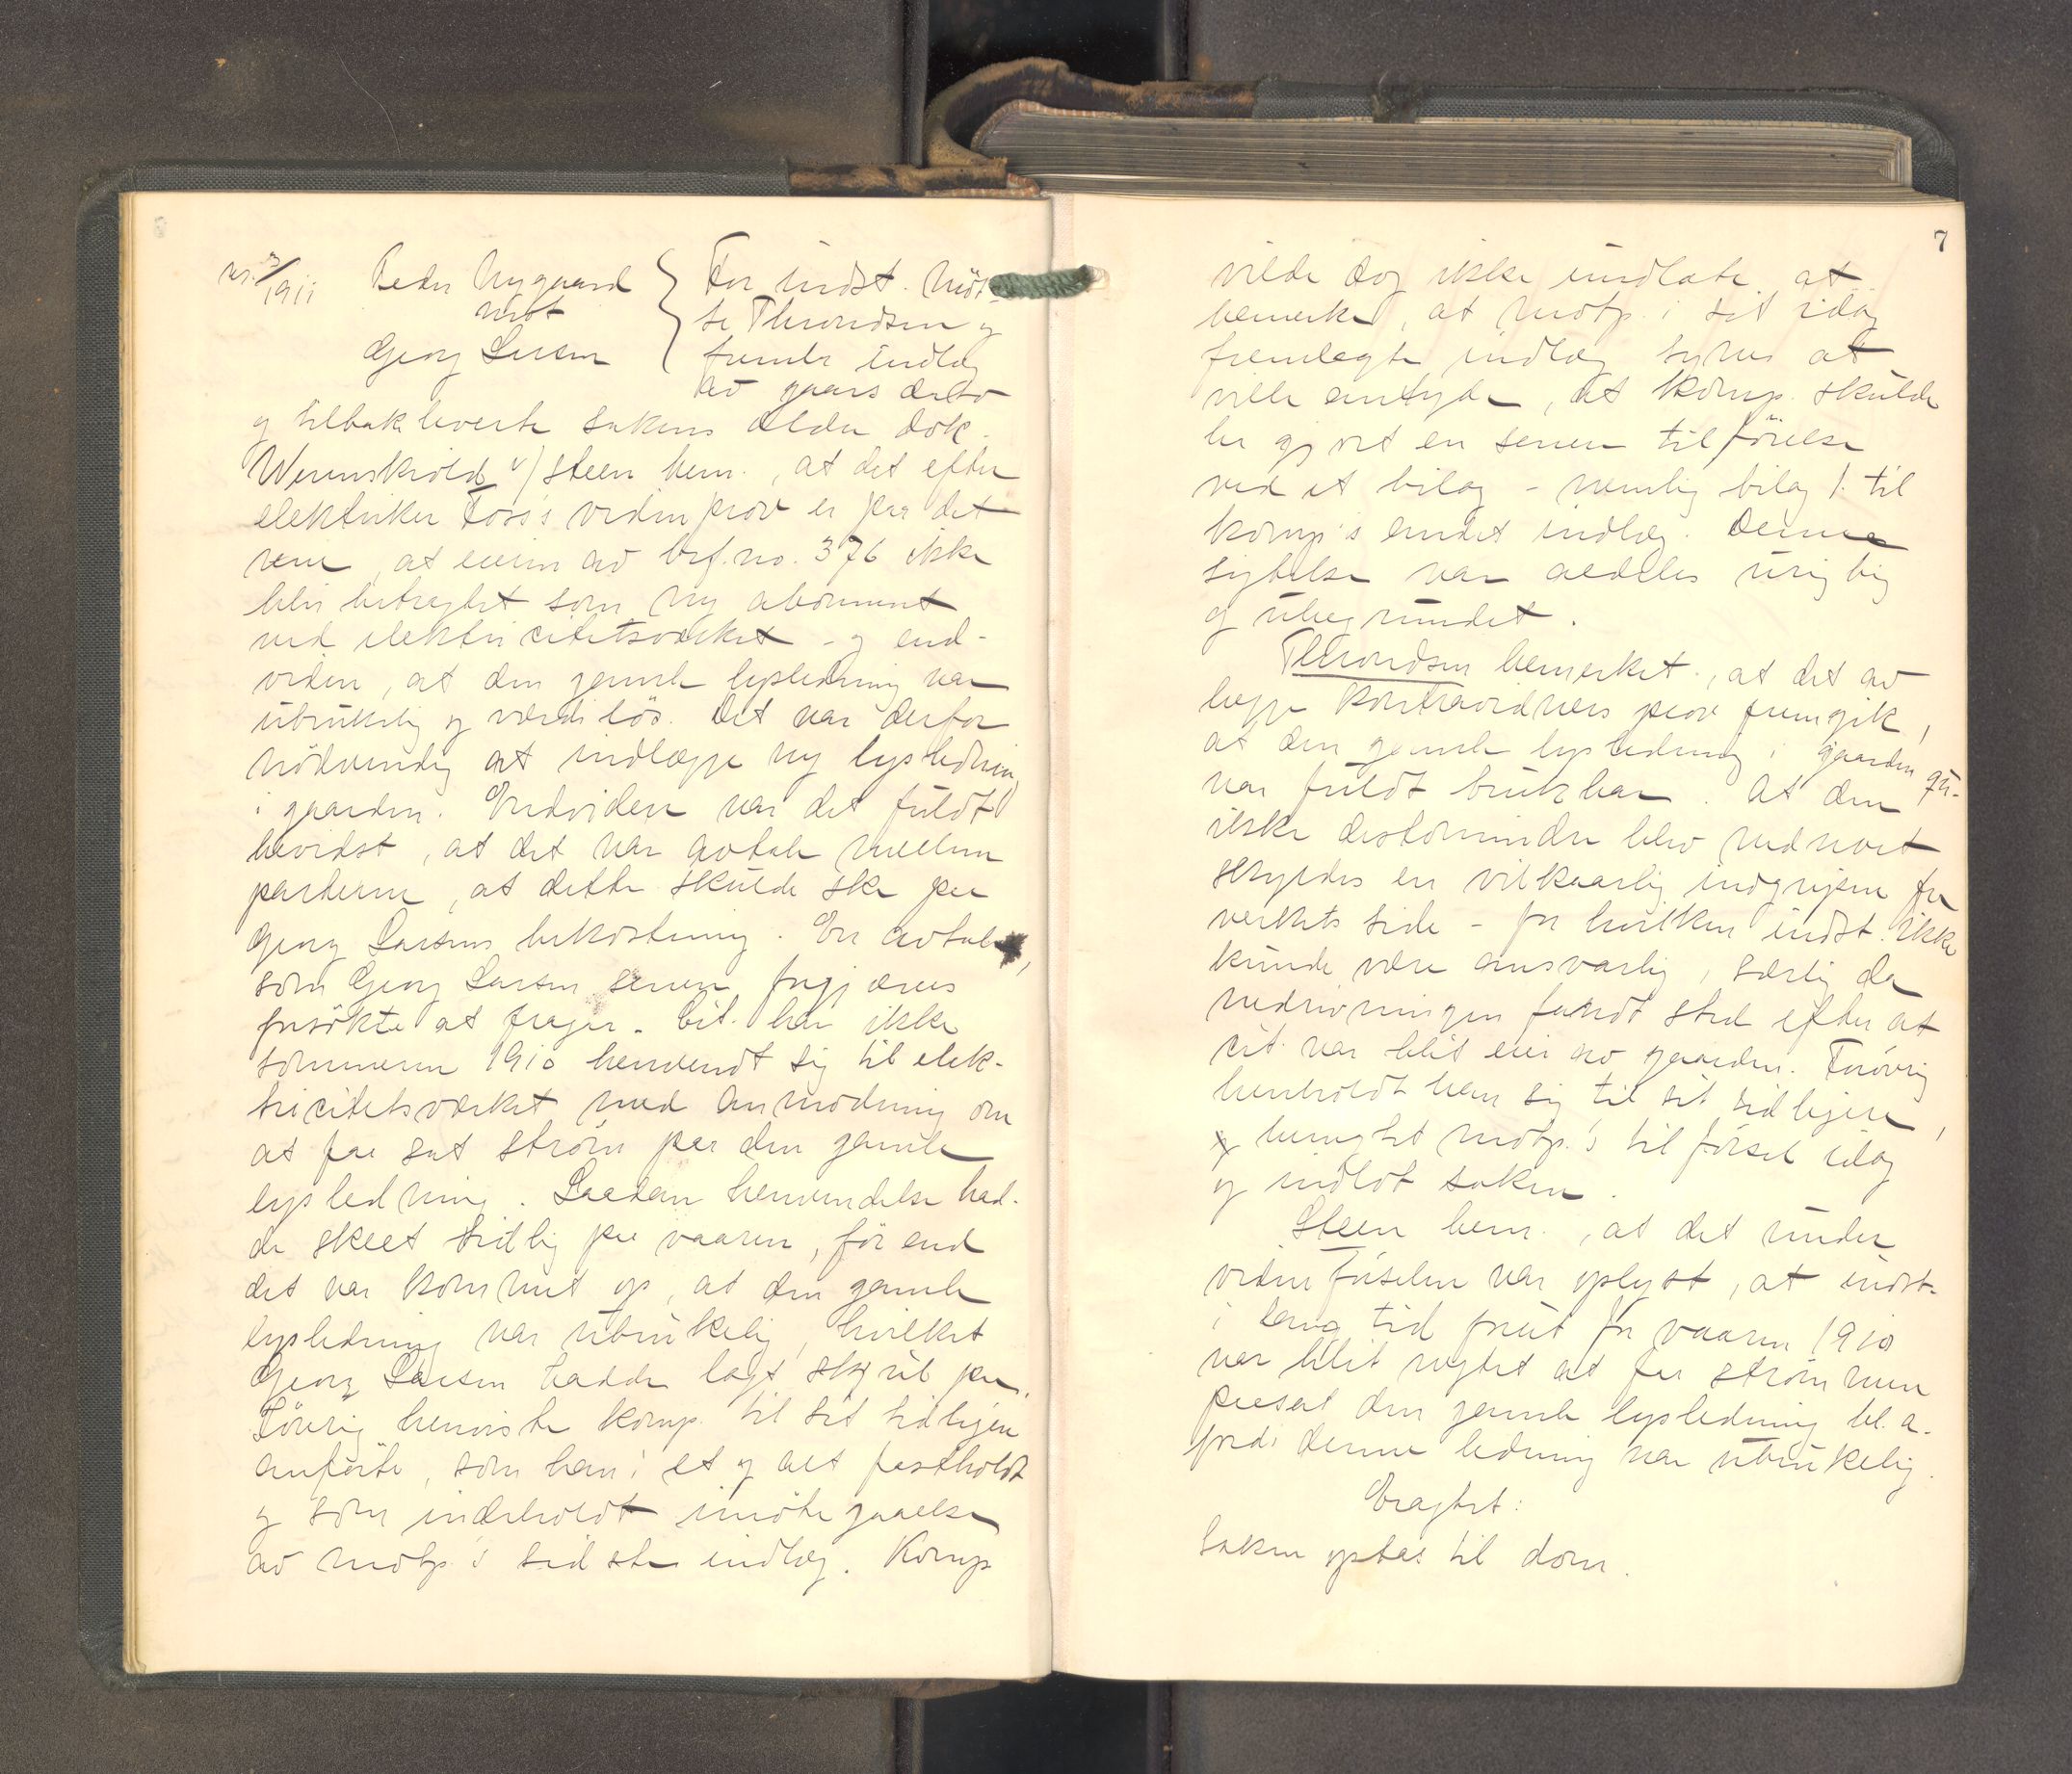 ns. 3/1911 Peder Nygaard
mot
Georg Larsen
For indst. möt-
te Throndsen og
fremla indlæg
av gaars dato
og tilbakeleverte sakens ældre dok.
Werenskiold v/ Steen bem., at det efter
elektriker Foss's vidneprov er paa det
rene, at eieren av brf. no. 376 ikke
blir betragtet som ny abonnent
ved elektricitetsværket – og end-
videre, at den gamle lysledning var
ubrukelig og værdilös. Det var derfor
nödvendig at indlægge ny lysledning
i gaarden. Endvidere var det fuldt
bevidst, at det var avtale mellem
parterne, at dette skulde ske paa
Georg Larsens bekostning. En avtale,
som Georg Larsen senere forgjæves
forsökte at fragaa. Cit. har ikke
sommeren 1910 henvendt sig til elek-
tricitetsværket med anmodning om
at faa sat ström paa den gamle
lysledning. Saadan henvendelse had-
de skeet tidlig paa vaaren, för end
det var kommet op, at den gamle
lysledning var ubrukelig, hvilket
Georg Larsen hadde lagt skjul paa.
Forövrig henviste komp. til sit tidligere
anförte, som han i et og alt fastholdt
og som indeholdt imötegaaelse
av motp.'s sidste indlæg. Komp
7
vilde dog ikke undlate at
bemerke, at motp. i sit idag
fremlagte indlæg synes at
ville antyde, at komp. skulde
ha gjort en senere tilförelse
ved et bilag – nemlig bilag 1 til
komp's andet indlæg. Denne
sigtelse var aldeles urigtig
og ubegrundet.
Throndsen bemerket, at det av
begge kontravidners prov fremgik,
at den gamle lysledning i gaarden
var fuldt brukbar. At den gu-
ikke destomindre blev nedrevet
skyldes en vilkaarlig indgripen fra
verkets side – for hvilken indst. ikke
kunde være ansvarlig, særlig da
nedrivningen fandt sted efter at
cit. var blit eier av gaarden. Forövrig
henholdt han sig til sit tidligere,
og benegtet motp.'s tilförsel idag
og indlot saken.
Steen bem., at det under
vidneförselen var oplyst, at indst.
i lang tid forut for vaaren 1910
var blit negtet at faa strömmen
paasat den gamle lysledning bl. a.
fordi denne ledning var ubrukelig.
Eragtet:
Saken optas til dom.